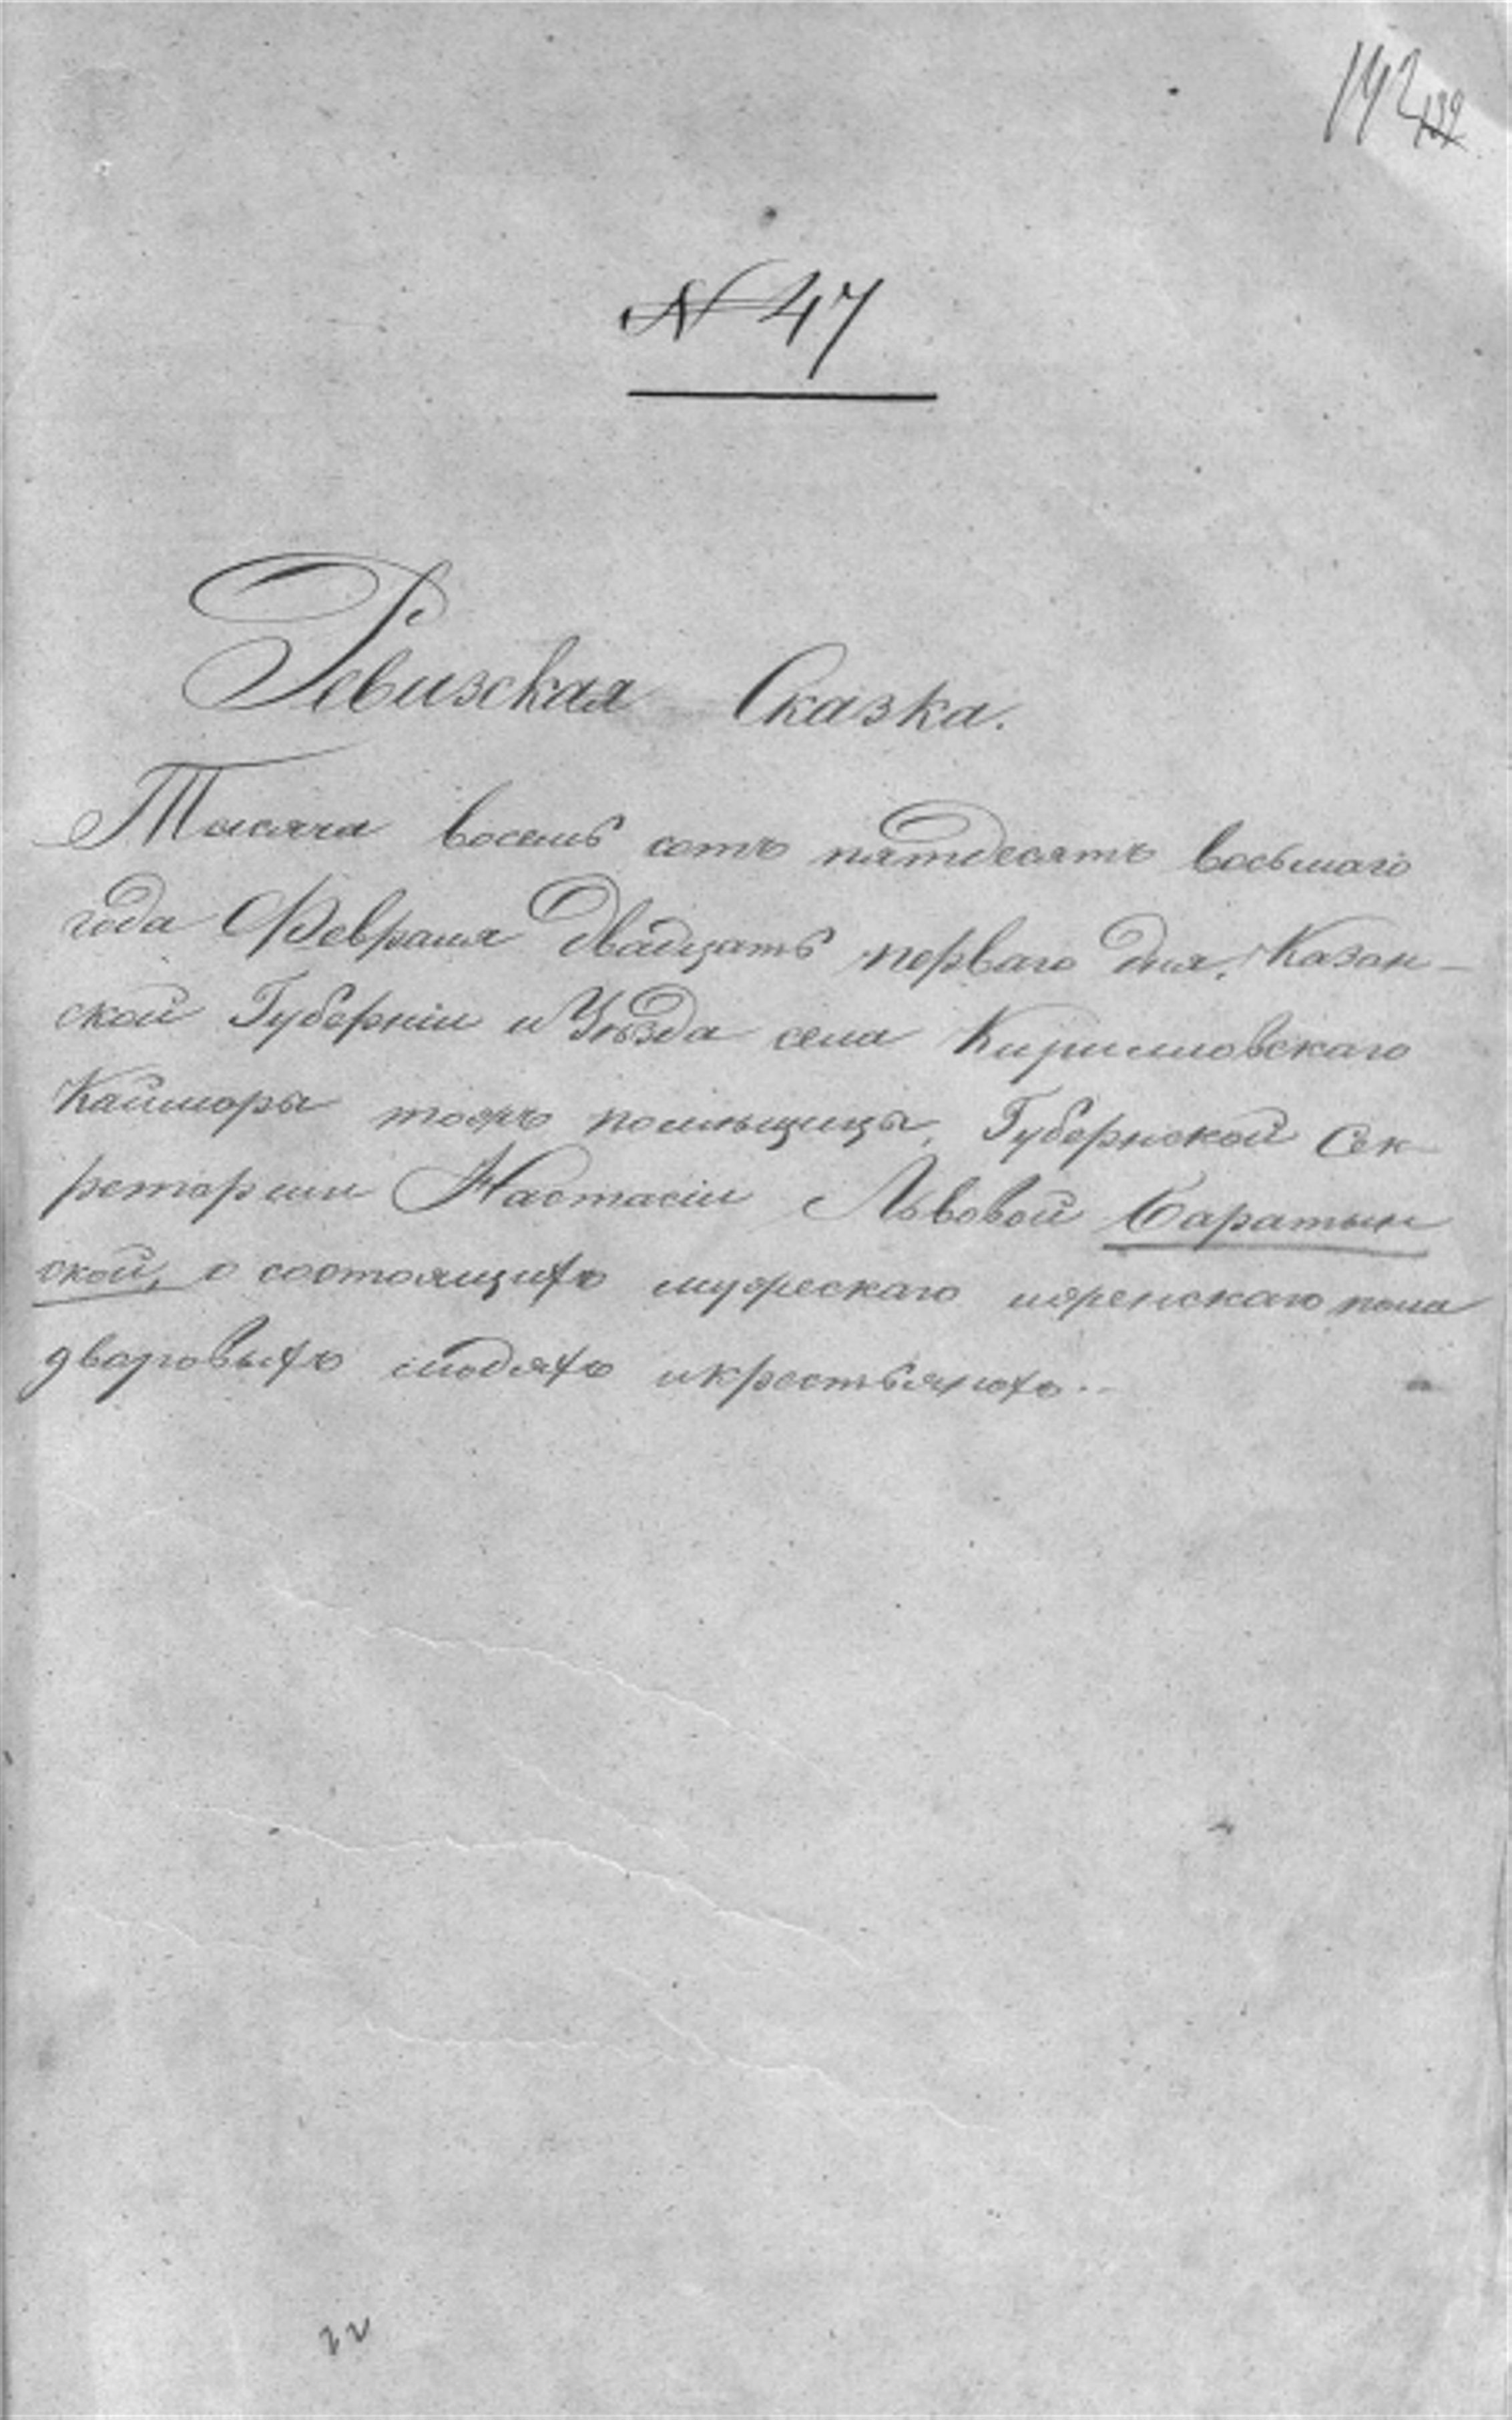 142 139
№ 47
Ревизская Сказка.
Тысяча восемь сотъ пятдесятъ восьмаго
года Февраля двадцать перваго дня, Казан-
ской Губерніи и Уѣзда села Кирилловскаго
Каймары тожъ помѣщицы, Губернской Сек
ретарши Настасіи Львовой Баратын
ской, о состоящихъ мужескаго иженскаго пола
дворовыхъ людяхъ икрестьянахъ..
22